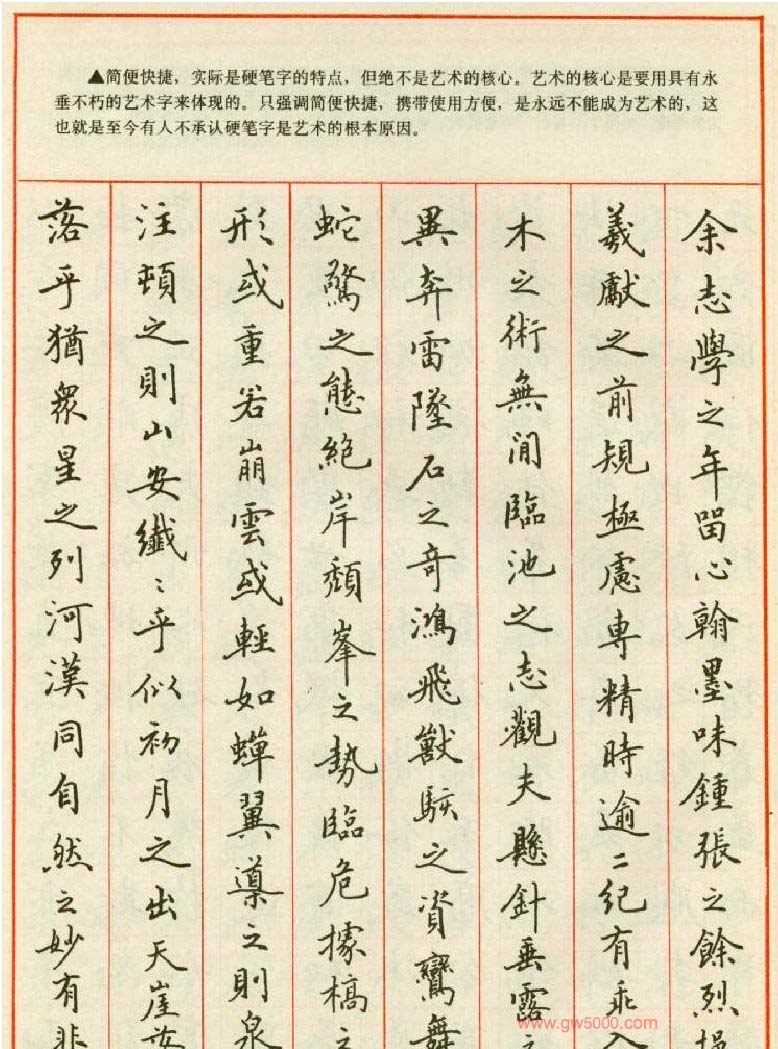 ▲简便快捷，实际是硬笔字的特点，但绝不是艺术的核心。艺术的核心是要用具有永
垂不朽的艺术字来体现的。只强调简便快捷，携带使用方便，是永远不能成为艺术的，这
也就是至今有人不承认硬笔字是艺术的根本原因。
余志學之年畱心翰墨味鍾張之餘烈挹
羲獻之前規極慮專精時逾二紀有乖入
木之術無間臨池之志觀夫懸針垂露之
異奔雷墜石之奇鴻飛獸駭之資鸞舞
蛇驚之態絶岸頹峯之勢臨危據槁之
形或重若崩雲或輕如蟬翼導之則泉
注頓之則山安纖〻乎似初月之出天崖
落乎猶眾星之列河漢同自然之妙有非
www.gw5000.com